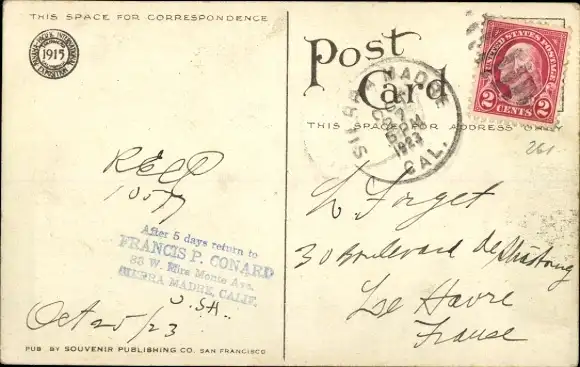 THIS SPACE FOR CORRESPONDENCE
PANAMA-PACIFIC INTERNATIONAL
1915
EXPOSITION
Post
Card
THIS SPACE FOR ADDRESS ONLY
UNITED STATES POSTAGE
2 CENTS 2
SIERRA MADRE
5 PM
1923
CAL.
261
After 5 days return to
FRANCIS P. CONARD
33 W. Mira Monte Ave.
SIERRA MADRE, CALIF.
U.SA.
Oct 25/23
L Forget
30 Boulevard de Strasbourg
Le Havre
France
PUB BY SOUVENIR PUBLISHING CO. SAN FRANCISCO